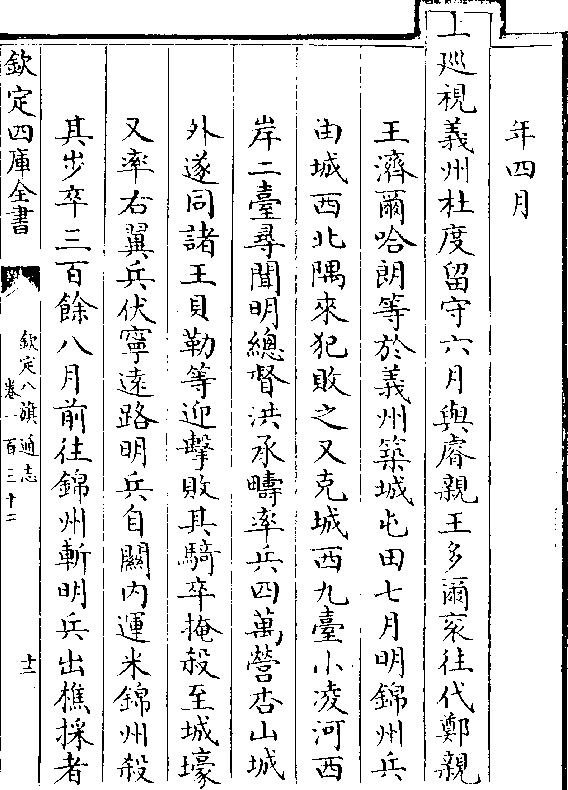 年四月
上廵視義州杜度留守六月與睿親王多爾衮往代鄭親
王濟爾哈朗等於義州築城屯田七月明錦州兵
由城西北隅來犯敗之又克城西九臺小凌河西
岸二臺尋聞明總督洪承疇率兵四萬營杏山城
外遂同諸王貝勒等迎擊敗其騎卒掩殺至城壕
又率右翼兵伏寧遠路明兵自關内運米錦州殺
其步卒三百餘八月前往錦州斬明兵出樵採者
欽定四庫全書
欽定八旗通志
卷一百三十二
十三